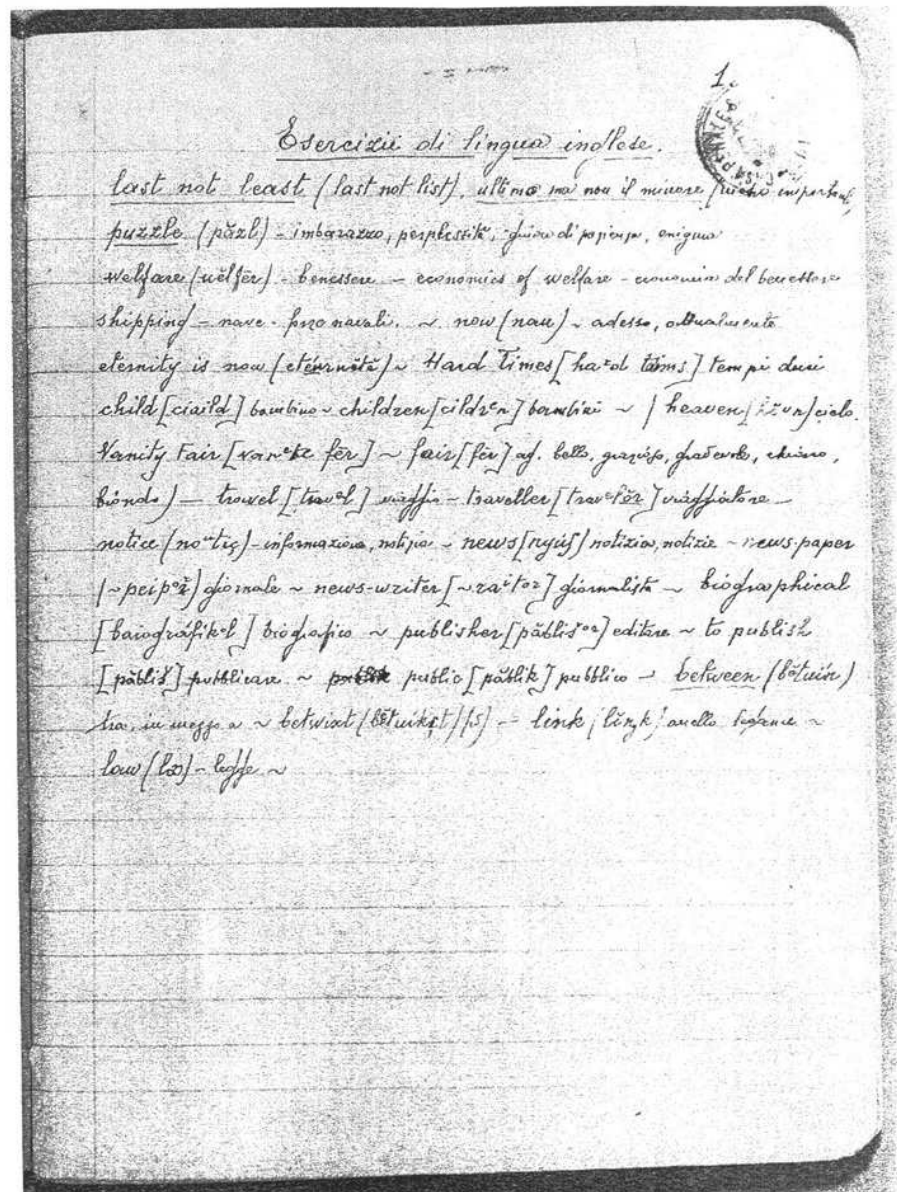 1
Esercizii di lingua inglese.
last not least (last not list), ultimo ma non il minore (meno important,
puzzle (păzl) - imbarazzo, perplessità, giuoco di pazienza, enigma
welfare (uëlfër) - benessere - economics of welfare - economia del benessere
shipping - nave - navali. ~ now (nau) ~ adesso, attualmente
eternity is now ~ Hard Times [ha^rd taims] tempi duri
child [ciaild] bambino ~ children [cildr^en] bambini ~ heaven cielo.
Vanity Fair ~ fair [fër] ag. bello, grazioso, gradevole, chiaro,
biondo) — travel [trav^el] viaggio - traveller viaggiatore -
notice (no^utiç) - informazione, notizia ~ news [nyúʃ] notizia, notizie ~ news-paper
giornale ~ news-writer [~raitor] giornalista ~ biographical
[baiográfik^el] biografico ~ publisher editore ~ to publish
[păbliš] pubblicare ~ public [păblik] pubblico - between (bĕtuín)
tra, in mezzo a ~ betwixt - link anello legame ~
law - legge ~